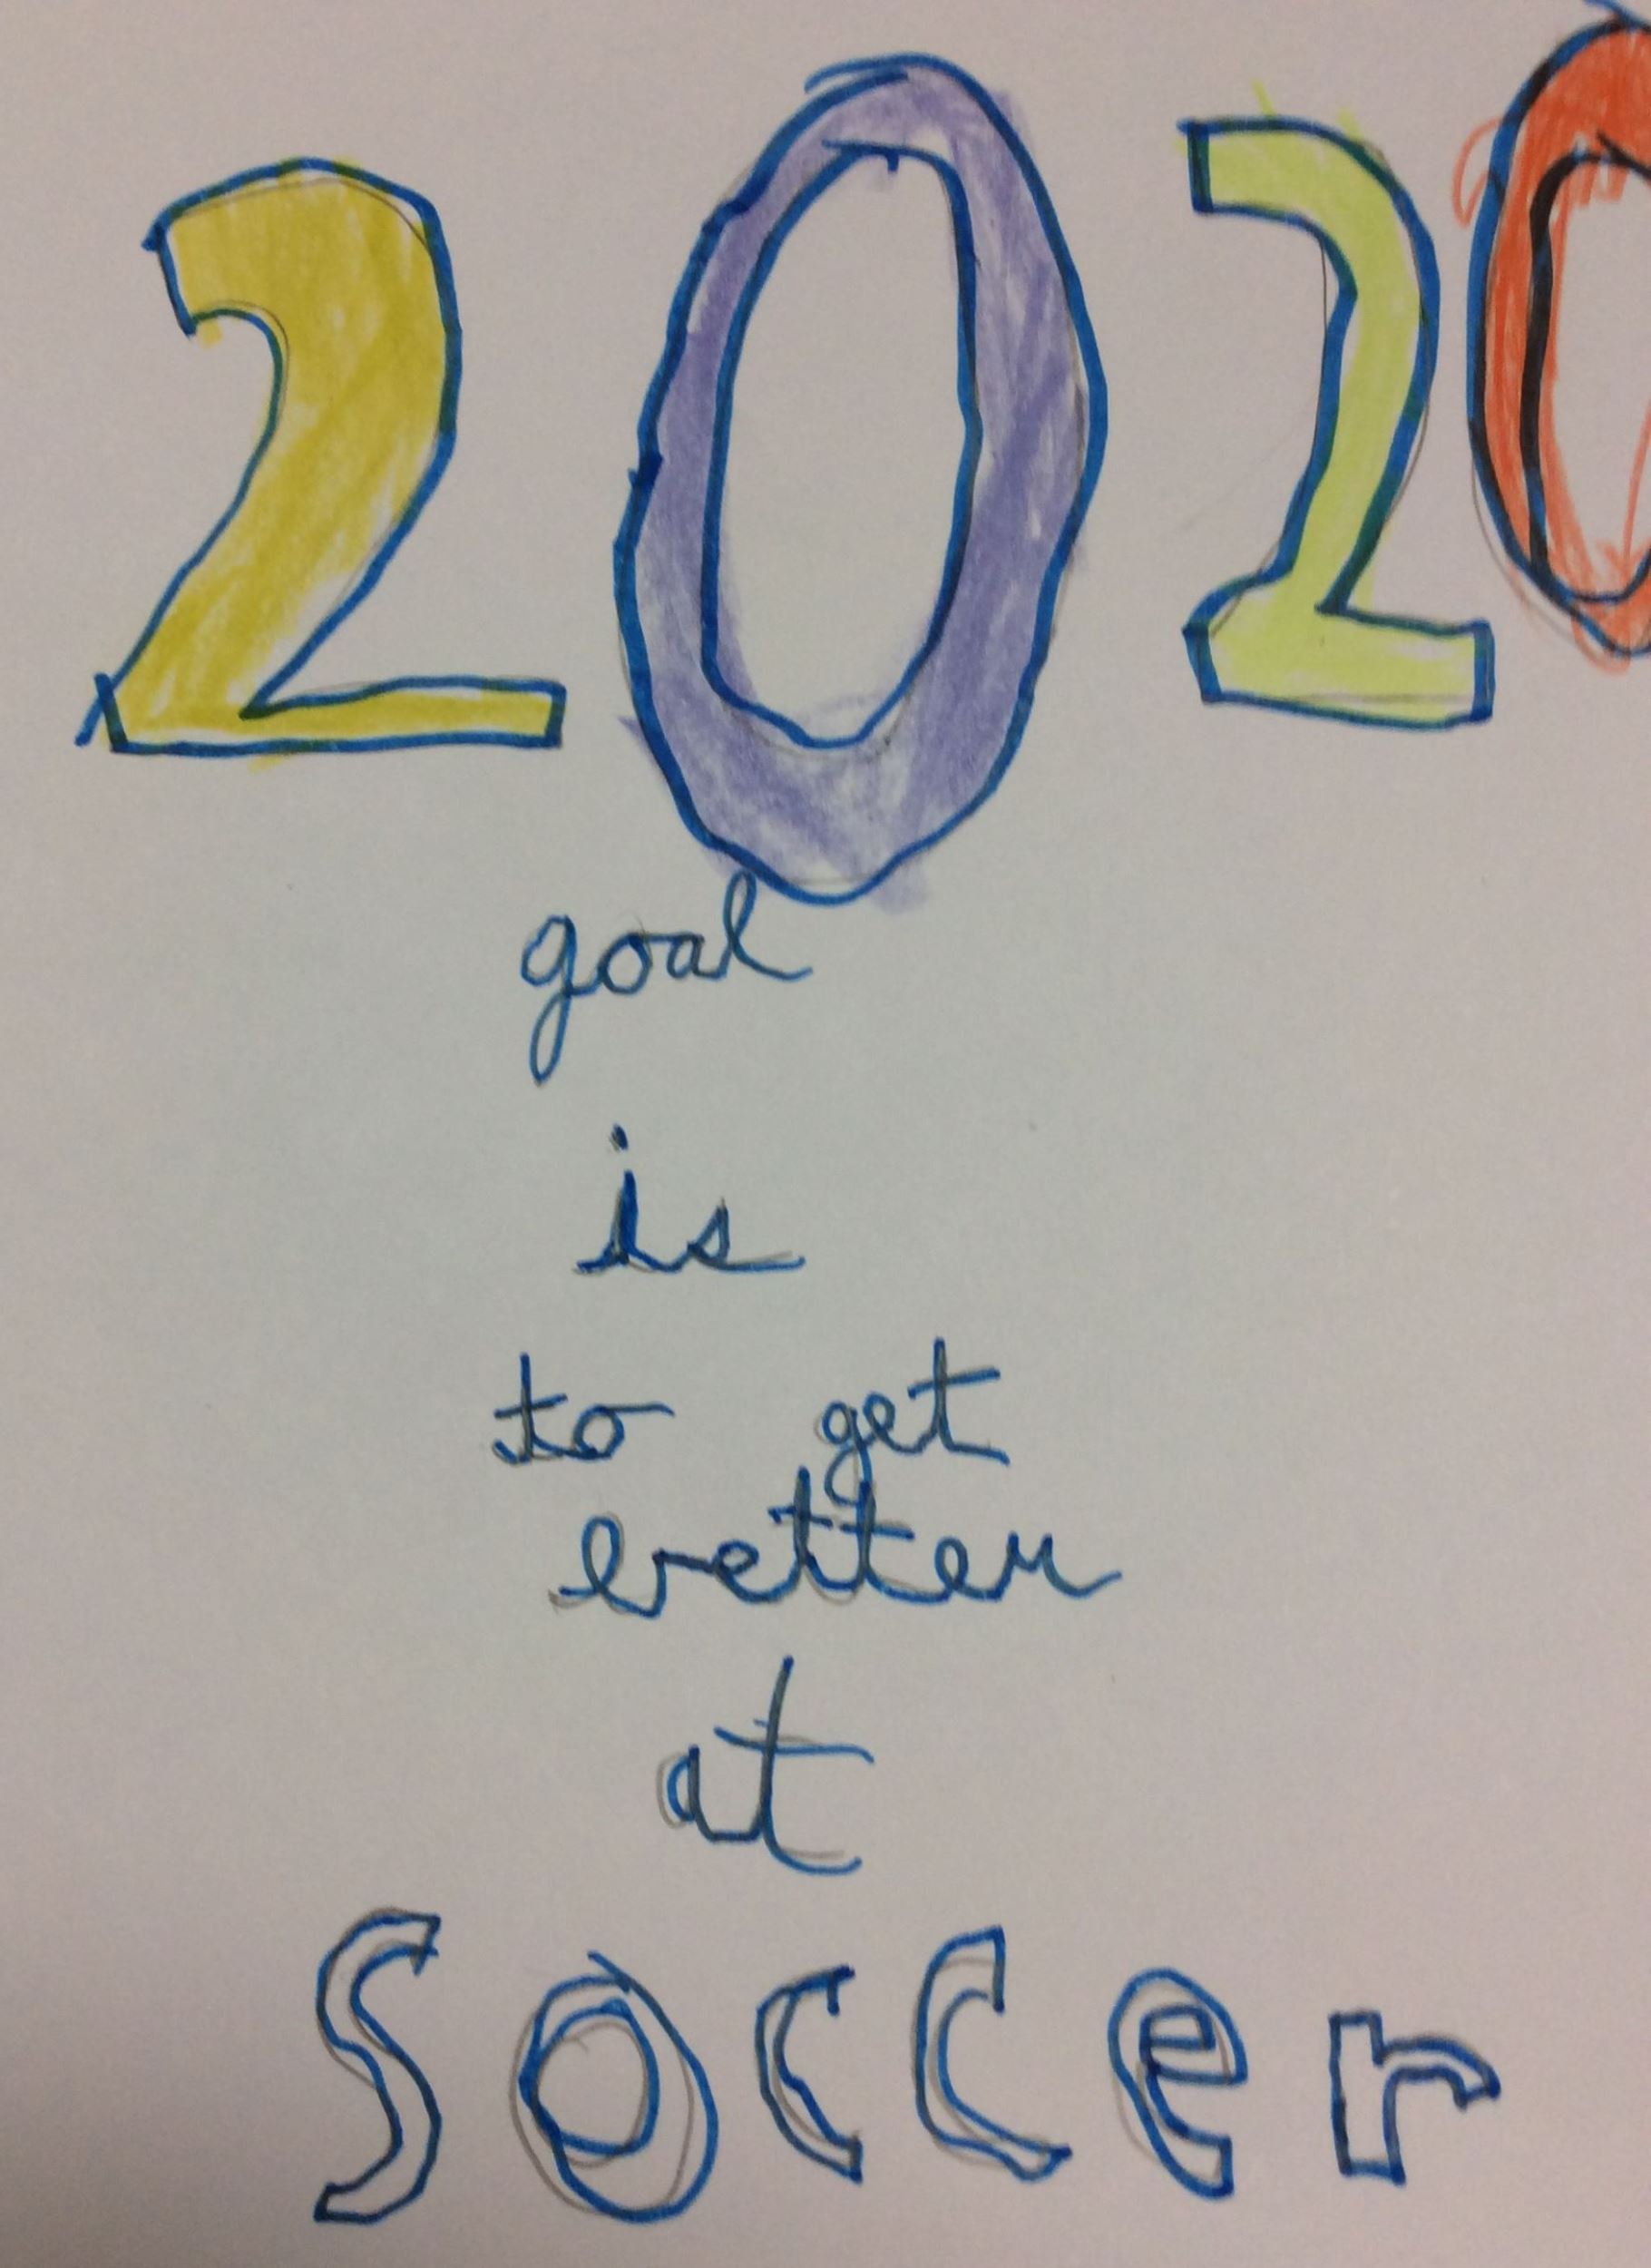 2020
goal
is
to get
better
at
Soccer